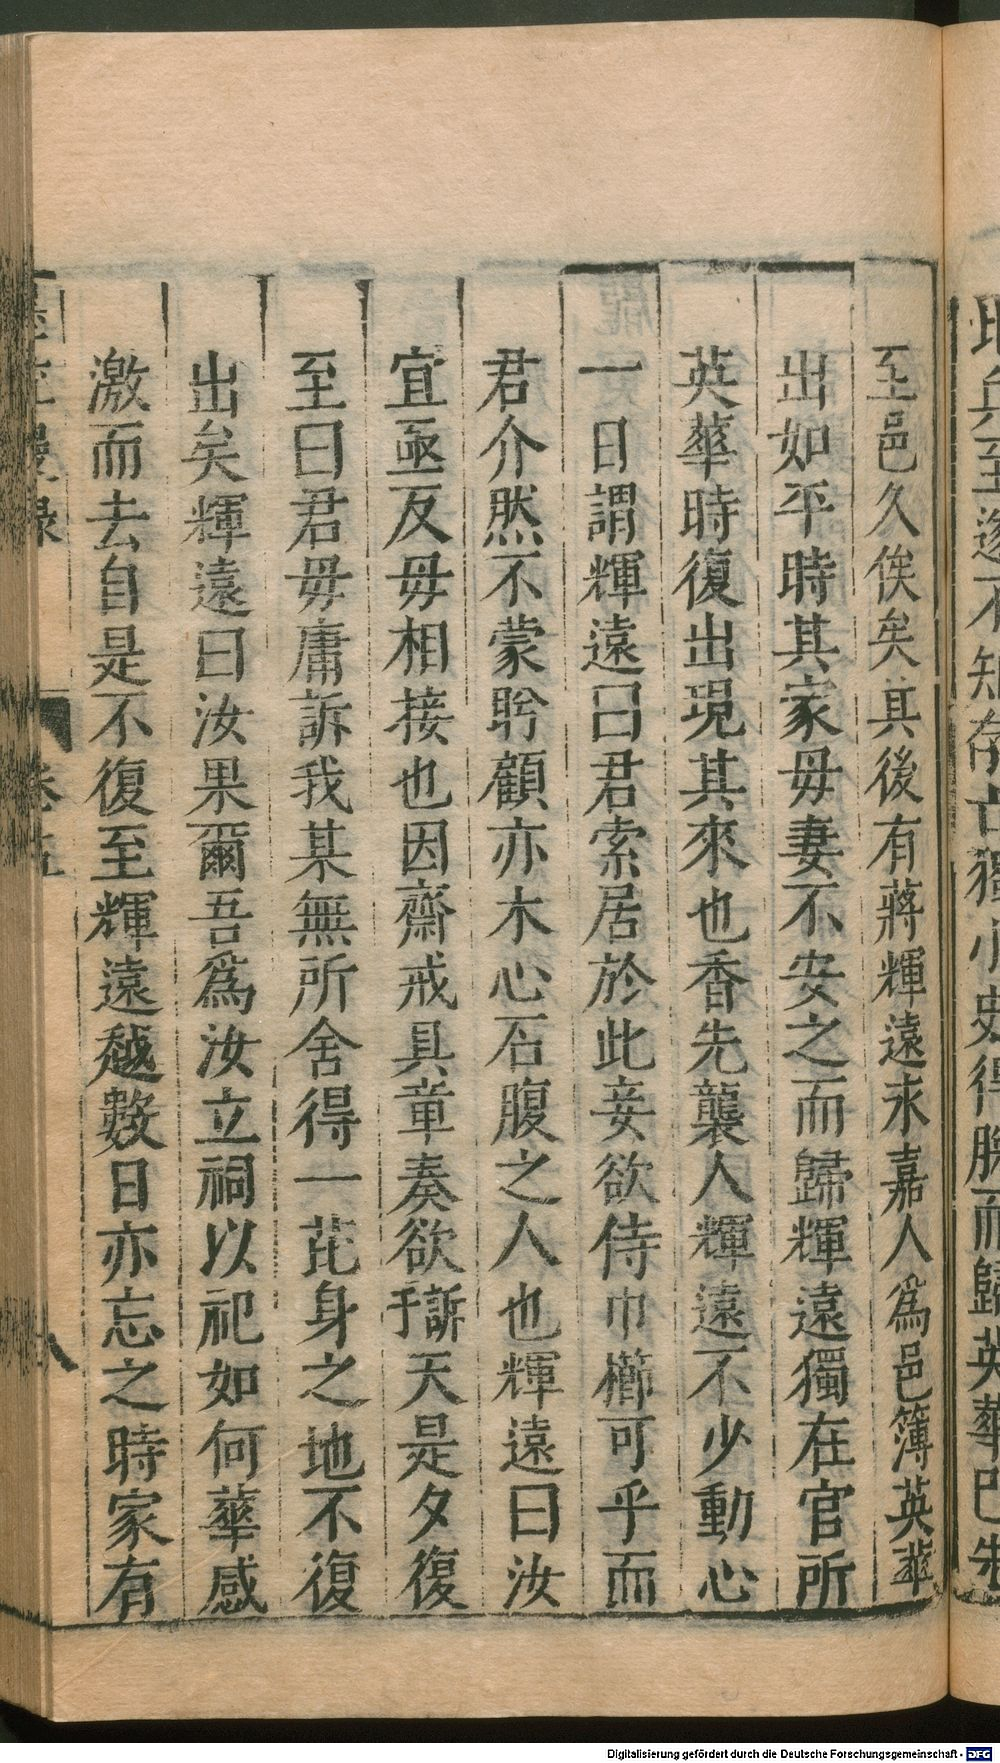 至邑久俟矣其後有蔣輝遠永嘉人爲邑簿英華
出如平時其家毋妻不安之而歸輝遠獨在官所
英華時復出現其來也香先襲人輝遠不少動心
一日謂輝遠曰君索居於此妾欲侍巾櫛可乎而
君介然不蒙盻顧亦木心石腹之人也輝遠曰汝
宜亟反毋相接也因齋戒具章奏欲訴于天是夕復
至曰君毋庸訴我某無所舍得一芘身之地不復
出矣輝遠曰汝果爾吾爲汝立祠以祀如何華感
激而去自是不復至輝遠越數日亦忘之時家有
卷五
八
Digitalisierung gefördert durch die Deutsche Forschungsgemeinschaft - DFG